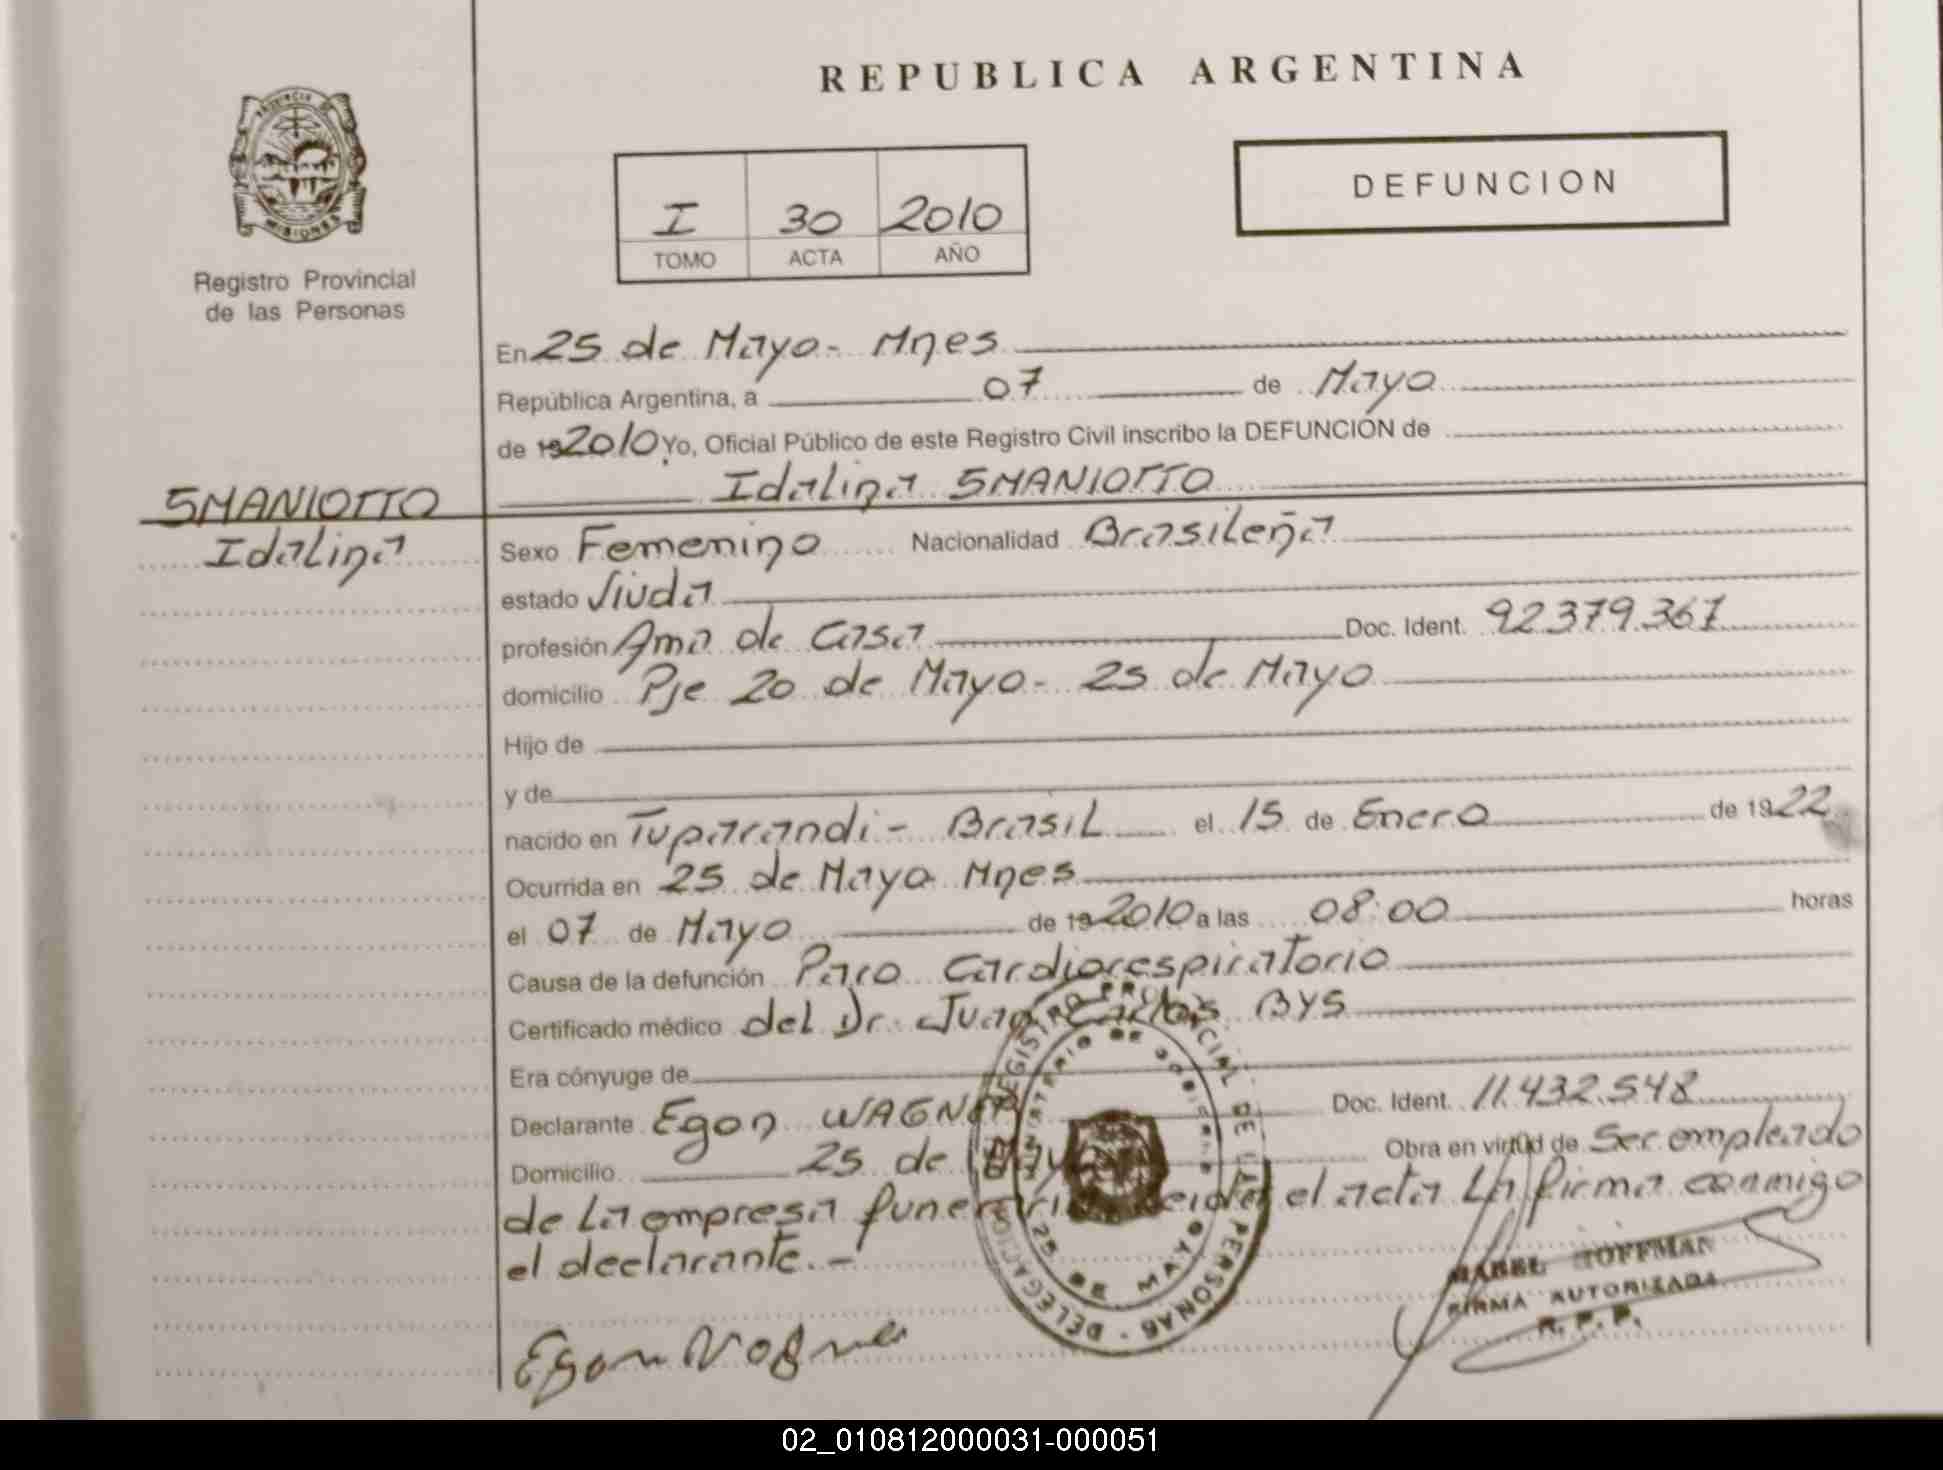 REPUBLICA ARGENTINA
PROVINCIA DE
MISIONES
Registro Provincial
de las Personas
I 30 2010
TOMO ACTA AÑO
DEFUNCION
En 25 de Mayo - Mnes
República Argentina, a 07 de Mayo
de 192010 Yo, Oficial Público de este Registro Civil inscribo la DEFUNCIÓN de
Idalina SMANIOTTO
SMANIOTTO
Idalina
Sexo Femenino Nacionalidad Brasileña
estado Viuda
profesión Ama de Casa Doc. Ident. 92.379.367
domicilio Pje 20 de Mayo - 25 de Mayo
Hijo de
y de
nacido en Tuparandi - Brasil el 15 de Enero de 1922
Ocurrida en 25 de Mayo Mnes
el 07 de Mayo de 192010 a las 08:00 horas
Causa de la defunción Paro Cardiorespiratorio
Certificado médico del Dr. Juan Carlos BYS
Era cónyuge de
Declarante Egon WAGNER Doc. Ident. 11.432.548
Domicilio 25 de Mayo Obra en virtud de Ser empleado
de la empresa funeraria Leida el acta la firma conmigo
el declarante. -
REGISTRO PROVINCIAL DE LAS PERSONAS - DELEGACION
MINISTERIO DE GOBIERNO
25 DE MAYO
Egon Wagner
MABEL HOFFMAN
FIRMA AUTORIZADA
R. P. P.
02_010812000031-000051